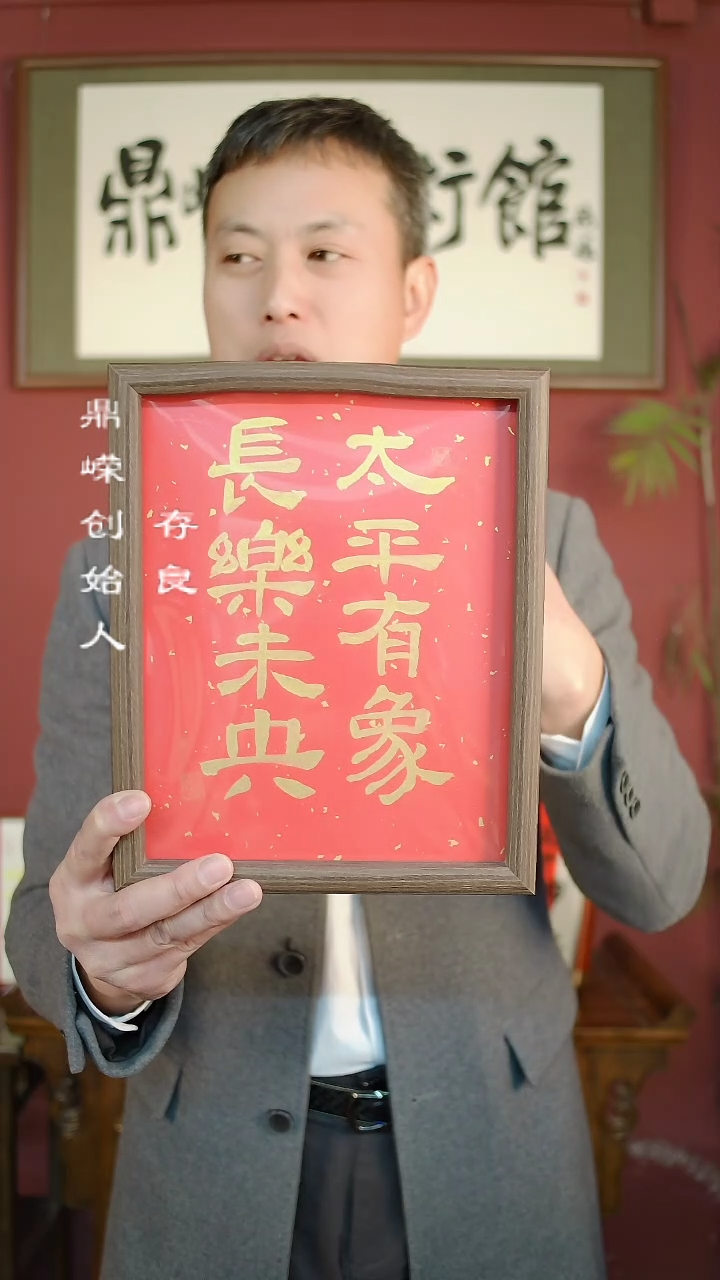 鼎嵘術館
太平有象
長樂未央
鼎嵘创始人
存良